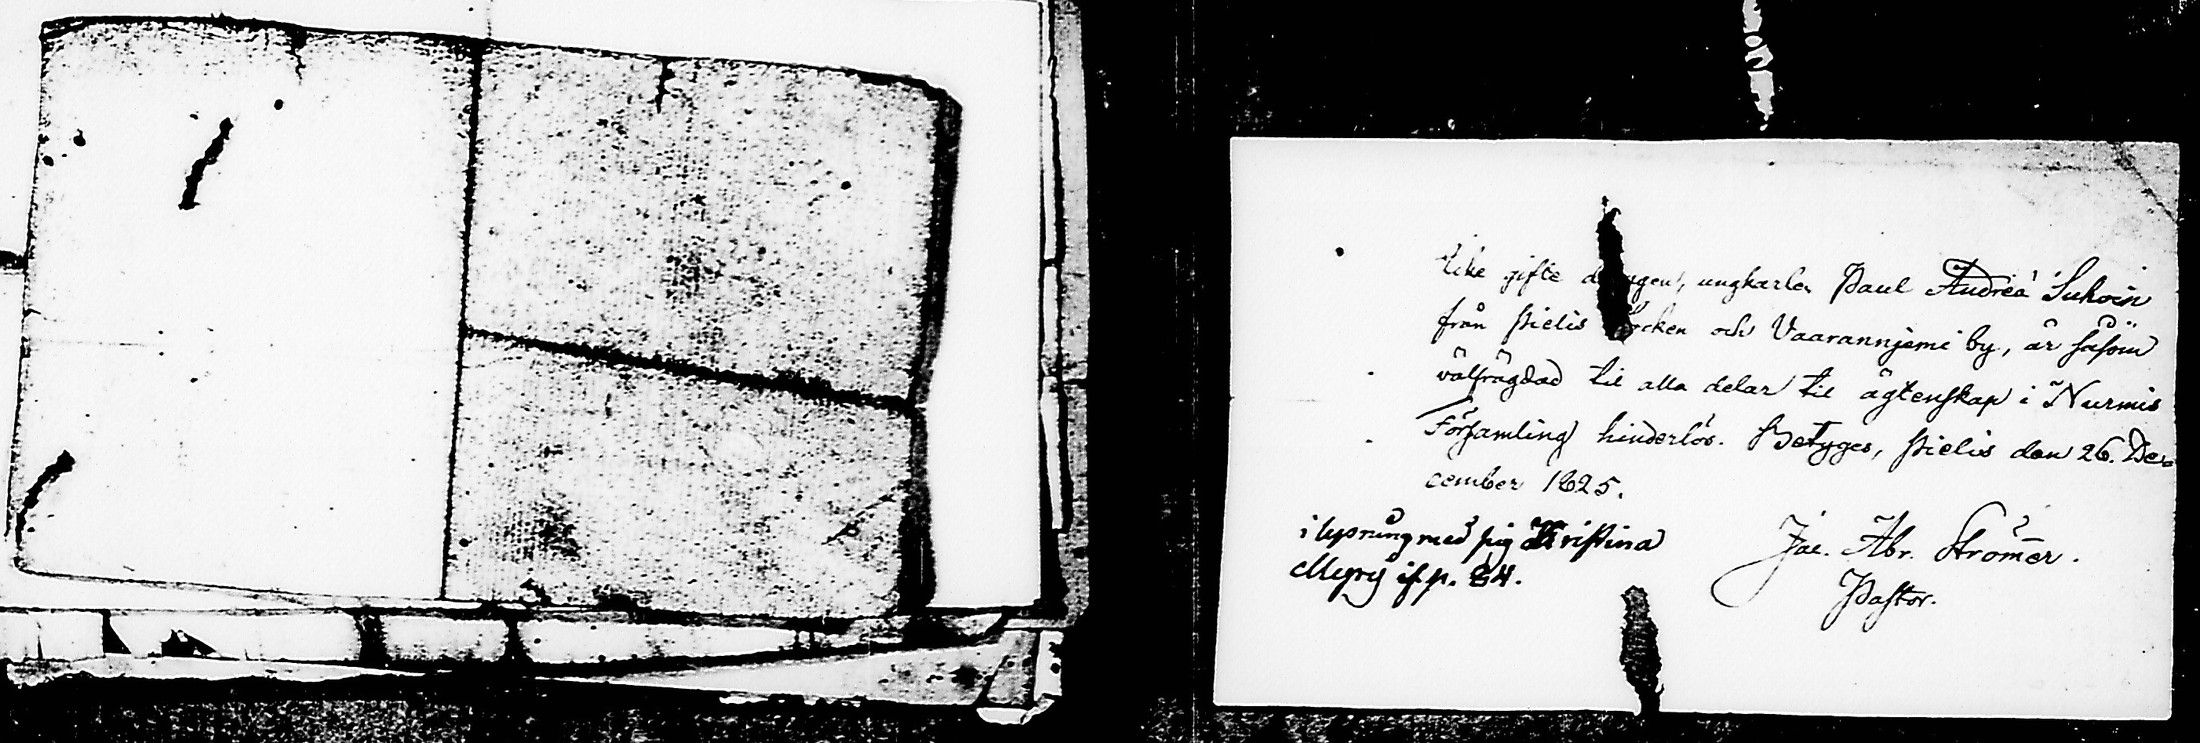 Icke gifte drängen, ungkarlen Paul Andreá Suhoin
från Pielis Socken och Vaarannjemi by, är såsom
välfrägdad til alla delar til ägtenskap i Nurmis
Församling hinderlös. Betyges, Pielis den 26. De-
cember 1825.
i lysning med pig Kristina
p. 84.
Jac. Abr. Strömer.
Pastor.